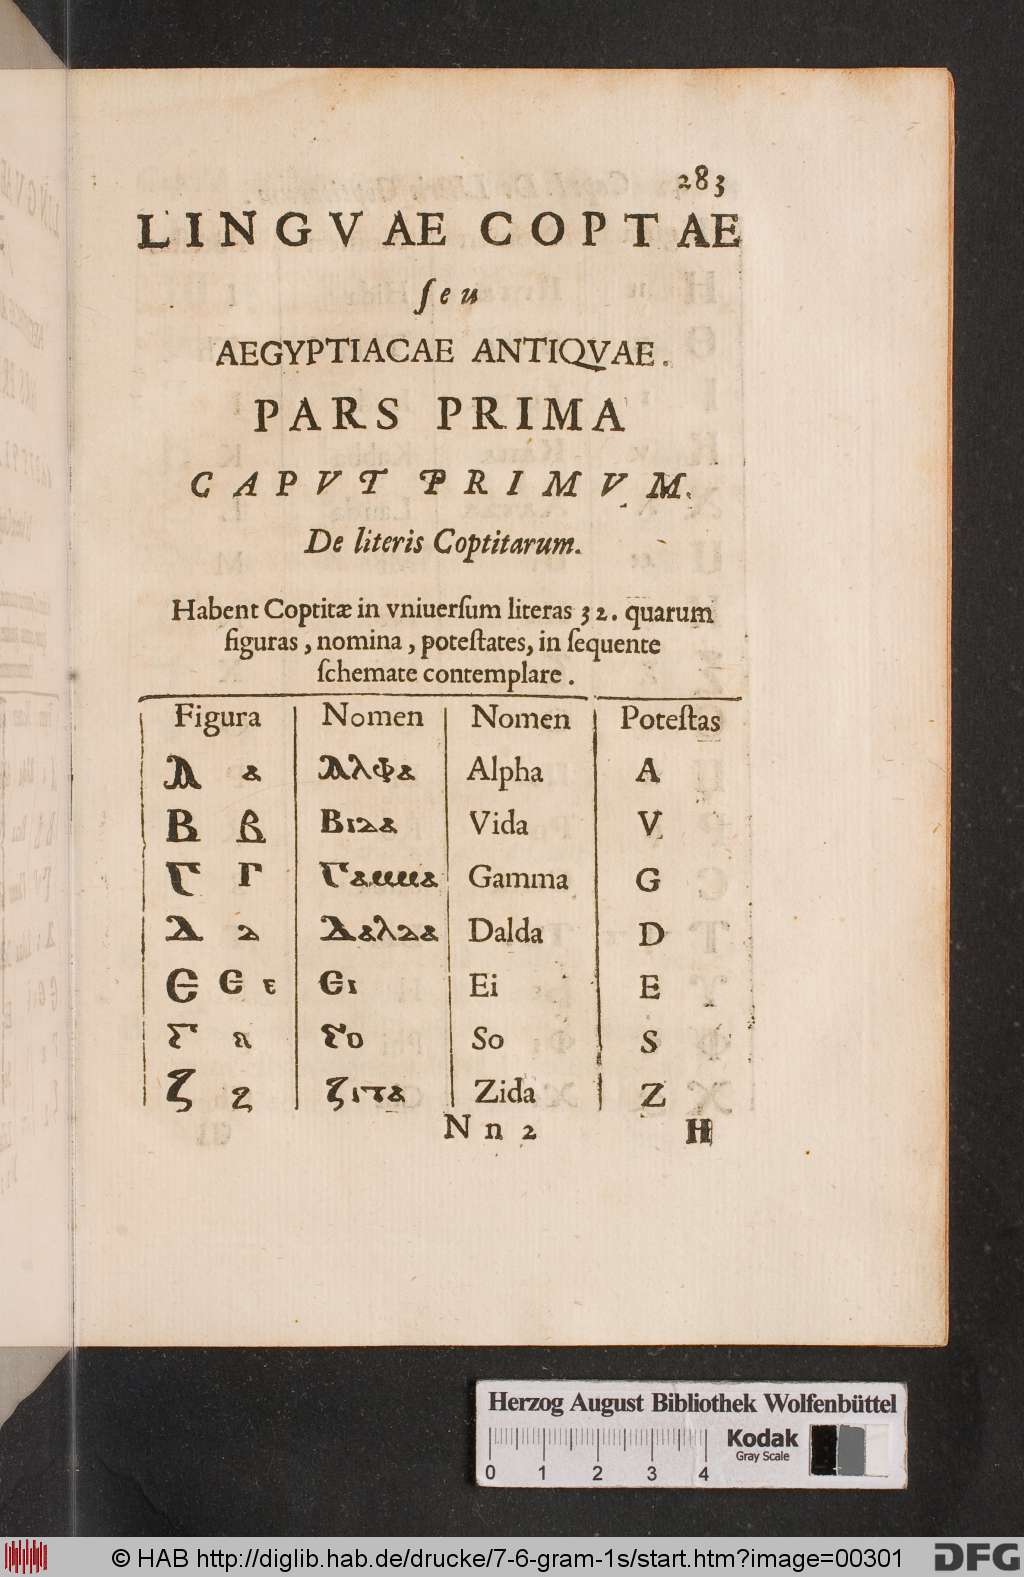 283
LINGVAE COPTAE
ſeu
AEGYPTIACAE ANTIQVAE.
PARS PRIMA
CAPVT PRIMVM.
De literis Coptitarum.
Habent Coptitæ in vniuerſum literas 32. quarum
figuras, nomina, poteſtates, in ſequente
ſchemate contemplare.
Figura Nomen Nomen Poteſtas
Ⲁ ⲁ Ⲁⲗⲫⲁ Alpha A
Ⲃ ⲃ Ⲃⲓⲇⲁ Vida V
Ⲅ ⲅ Ⲅⲁⲙⲙⲁ Gamma G
Ⲇ ⲇ Ⲇⲁⲗⲇⲁ Dalda D
Ⲉ Ⲉ ⲉ Ⲉⲓ Ei E
Ⲋ ⲋ Ⲋⲟ So S
Ⲍ ⲍ Ⲍⲓⲧⲁ Zida Z
Nn 2 H
Herzog August Bibliothek Wolfenbüttel
Kodak
Gray Scale
0 1 2 3 4
© HAB http://diglib.hab.de/drucke/7-6-gram-1s/start.htm?image=00301 DFG